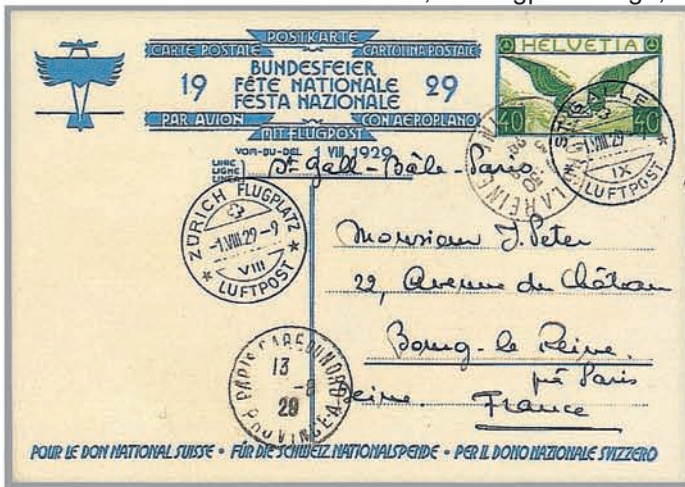 POSTKARTE
CARTE POSTALE CARTOLINA POSTALE
19 BUNDESFEIER 29
FÊTE NATIONALE
FESTA NAZIONALE
PAR AVION CON AEROPLANO
MIT FLUGPOST
VOM-DU-DEL 1 VIII 1929
LINIE
LIGNE
LINEA
St Gall - Bâle - Paris
HELVETIA
40 40
ST. GALLEN
-1.VIII.29
IX
LUFTPOST
ZÜRICH FLUGPLATZ
-1.VIII.29-9
VIII
LUFTPOST
Monsieur J. Peter
22, Avenue du Château
Bourg-la Reine.
près Paris
Seine. France
PARIS GARE DU NORD
13
-8
29
PROVINCE A
POUR LE DON NATIONAL SUISSE • FÜR DIE SCHWEIZ. NATIONALSPENDE • PER IL DONO NAZIONALE SVIZZERO